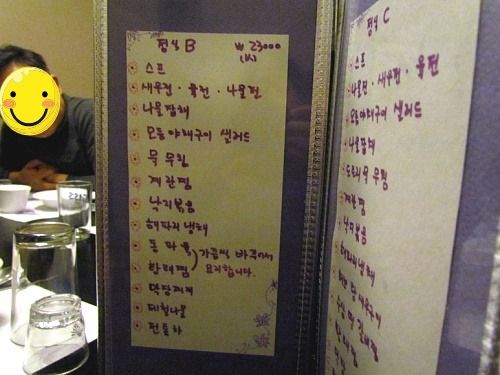 정식 B ₩ 23000
(1人)
스프
새우전 · 육전 · 나물전
나물잡채
모듬야채구이 샐러드
묵 무침
계란찜
낙지볶음
해파리냉채
가끔씩 바꾸어서
요리합니다.
된장찌개
제철나물
전통차
정식 C
스프
나물전 · 새우전 · 육전
모듬야채구이 샐러드
나물잡채
도토리묵 무침
계란찜
낙지볶음
해파리냉채